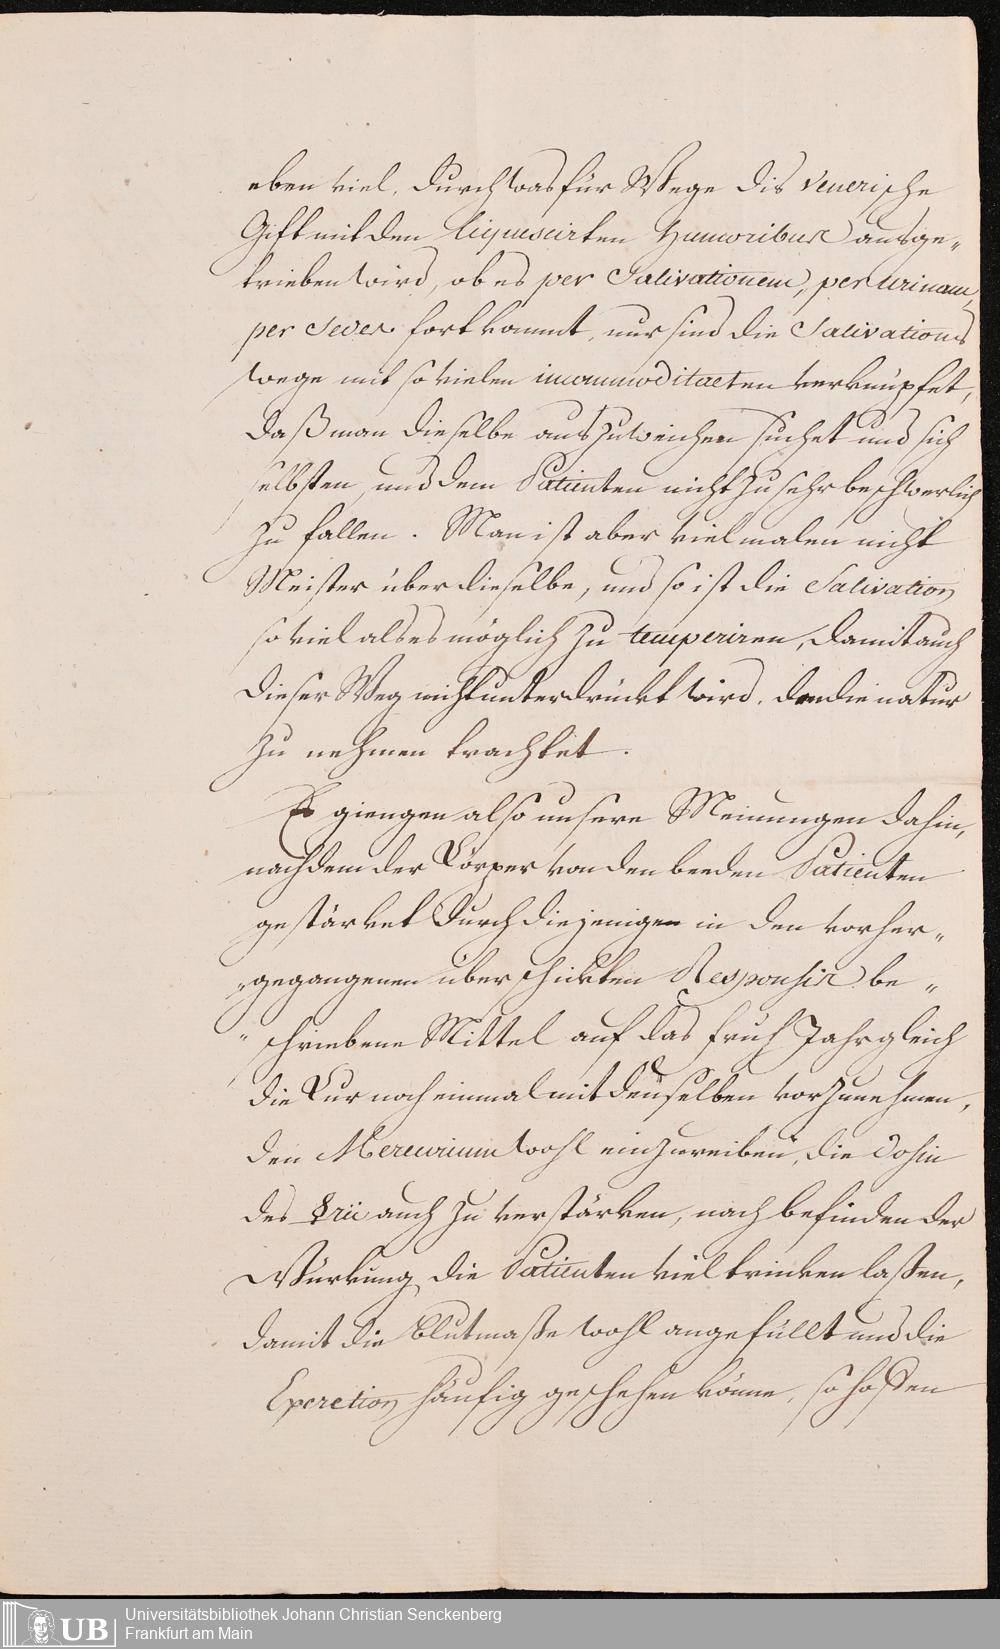 eben viel, durch was für Wege dis Venerische
Gift mit den liquescirten Humoribus ausge„
trieben wird, ob es per Salivationem, per Urinam,
per Sedes fortkommt, nur sind die Salivations
wege mit so vielen incommoditaeten verknüpfet,
daß man dieselbe auszuweichen suchet und sich
selbsten, und dem Patienten nicht zu sehr beschwerlich
zu fallen. Man ist aber vielmalen nicht
Meister über dieselbe, und so ist die Salivation
so viel als es möglich zu temperiren, damit auch
dieser Weg nicht unterdrückt wird, den die natur
zu nehmen trachtet.
Es giengen also unsere Meinungen dahin,
nachdem der Körper von den beeden Patienten
gestärket durch diejenigen in den vorher„
„gegangenen überschickten Responsis be„
„schriebene Mittel auf das früh Jahr gleich
die Cur noch einmal mit denselben vorzunehmen,
den Mercurium wohl einzureiben, die Dosin
des ☿rii auch zu verstärken, nach befinden der
Würkung die Patienten viel trinken laßen,
damit die Blutmaße wohl angefüllt und die
Excretion häufig geschehen könne, so hoffen
Universitätsbibliothek Johann Christian Senckenberg
Frankfurt am Main
UB